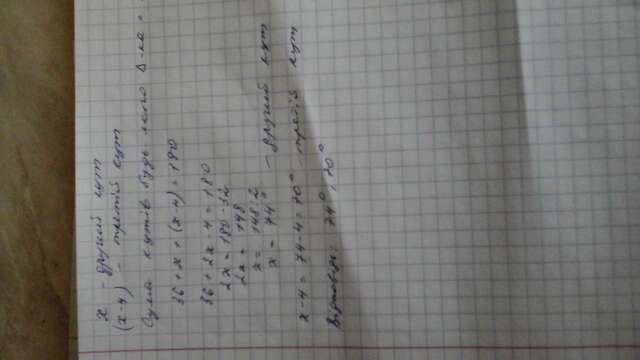 x - другий кут
(x-4) - третій кут
Сума кутів будь якого Δ-ка =
36 + x + (x-4) = 180
36 + 2x - 4 = 180
2x = 180-32
2x = 148
x = 148:2
x = 74° - другий кут
x-4 = 74-4 = 70° третій кут
Відповідь: 74°, 70°